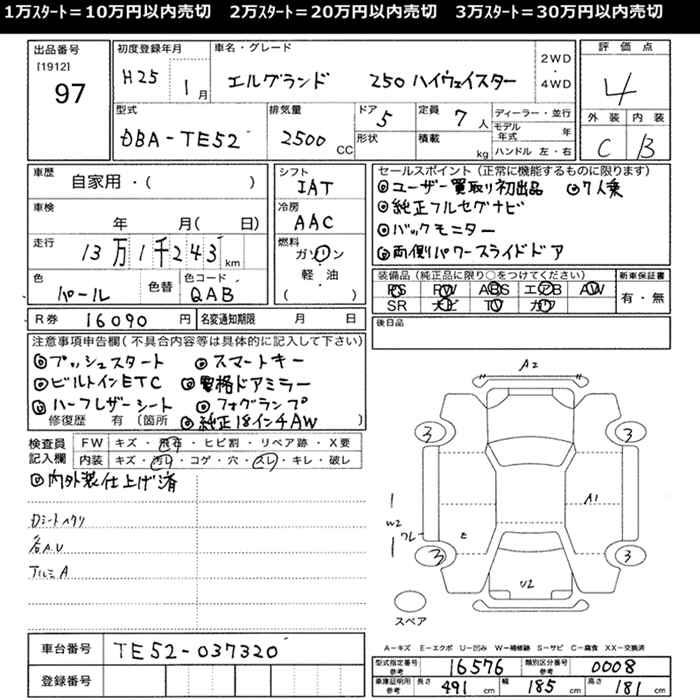 1万ｽﾀｰﾄ＝10万円以内売切　2万ｽﾀｰﾄ＝20万円以内売切　3万ｽﾀｰﾄ＝30万円以内売切
出品番号
[1912]
97
初度登録年月
H25 1月
車名・グレード
エルグランド 250 ハイウェイスター
2WD
・
4WD
評価点
4
外装 内装
C B
型式
DBA-TE52
排気量
2500 CC
ドア 5
形状
定員 7人
積載 kg
ディーラー・並行
モデル年式 年
ハンドル 左・右
車歴
自家用・( )
車検
年 月( 日)
走行
13万1千243km
色
パール
色替
色コード
QAB
シフト
IAT
冷房
AAC
燃料
ガソリン
軽・油
( )
セールスポイント(正常に機能するものに限ります)
◎ユーザー買取り初出品 ◎7人乗
◎純正フルセグナビ
◎バックモニター
◎両側パワースライドドア
装備品(純正品に限り○をつけてください)
PS PW ABS エアB AW
SR ナビ TV カワ
新車保証書
有・無
R券 16090 円
名変通知期限 月 日
後日品
注意事項申告欄(不具合内容等は具体的に記入して下さい)
◎プッシュスタート ◎スマートキー
◎ビルトインETC ◎電格ドアミラー
◎ハーフレザーシート ◎フォグランプ
修復歴 有 〔箇所 ◎純正18インチAW 〕
検査員記入欄
FW キズ・飛石・ヒビ割・リペア跡・X要
内装 キズ・汚れ・コゲ・穴・スレ・キレ・破レ
◎内外装仕上げ済
各A.U
アルミA
A2
3
3
A1
W2
ワレ
E
3
3
U2
スペア
車台番号 TE52-037320
登録番号
A＝キズ E＝エクボ U＝凹み W＝補修跡 S＝サビ C＝腐食 XX＝交換済
型式指定番号 参考 16576 類別区分番号 参考 0008
車庫証明用 参考 長さ 491 cm 幅 185 cm 高さ 181 cm